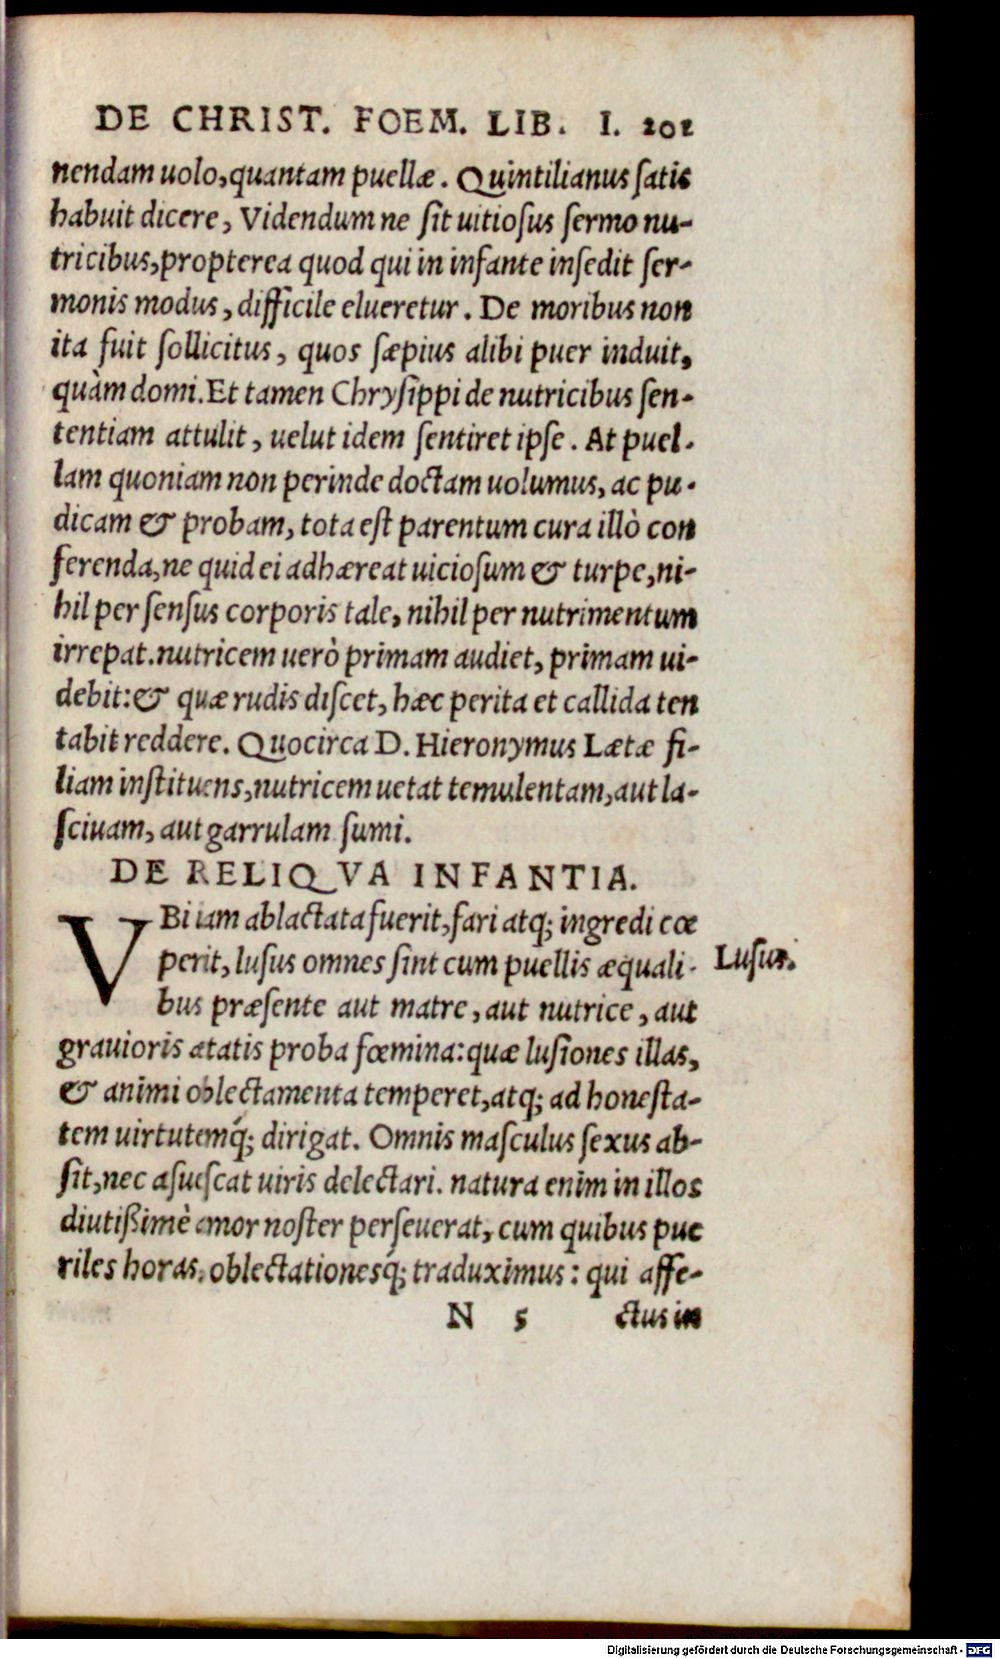 DE CHRIST. FOEM. LIB. I. 201
nendam uolo, quantam puellæ. Quintilianus satis
habuit dicere, Videndum ne sit uitiosus sermo nu-
tricibus, propterea quod qui in infante insedit ser-
monis modus, difficile elueretur. De moribus non
ita fuit sollicitus, quos sæpius alibi puer induit,
quàm domi. Et tamen Chrysippi de nutricibus sen-
tentiam attulit, uelut idem sentiret ipse. At puel-
lam quoniam non perinde doctam uolumus, ac pu-
dicam & probam, tota est parentum cura illò con
ferenda, ne quid ei adhæreat uiciosum & turpe, ni-
hil per sensus corporis tale, nihil per nutrimentum
irrepat. nutricem uerò primam audiet, primam ui-
debit: & quæ rudis discet, hæc perita et callida ten
tabit reddere. Quocirca D. Hieronymus Lætæ fi-
liam instituens, nutricem uetat temulentam, aut la-
sciuam, aut garrulam sumi.
DE RELIQVA INFANTIA.
VBi iam ablactata fuerit, fari atq; ingredi cœ
perit, lusus omnes sint cum puellis æquali-
Lusus.
bus præsente aut matre, aut nutrice, aut
grauioris ætatis proba fœmina: quæ lusiones illas,
& animi oblectamenta temperet, atq; ad honesta-
tem uirtutemq́; dirigat. Omnis masculus sexus ab-
sit, nec asuescat uiris delectari. natura enim in illos
diutißimè amor noster perseuerat, cum quibus pue
riles horas, oblectationesq́; traduximus: qui affe-
N 5 ctus in
Digitalisierung gefördert durch die Deutsche Forschungsgemeinschaft - DFG